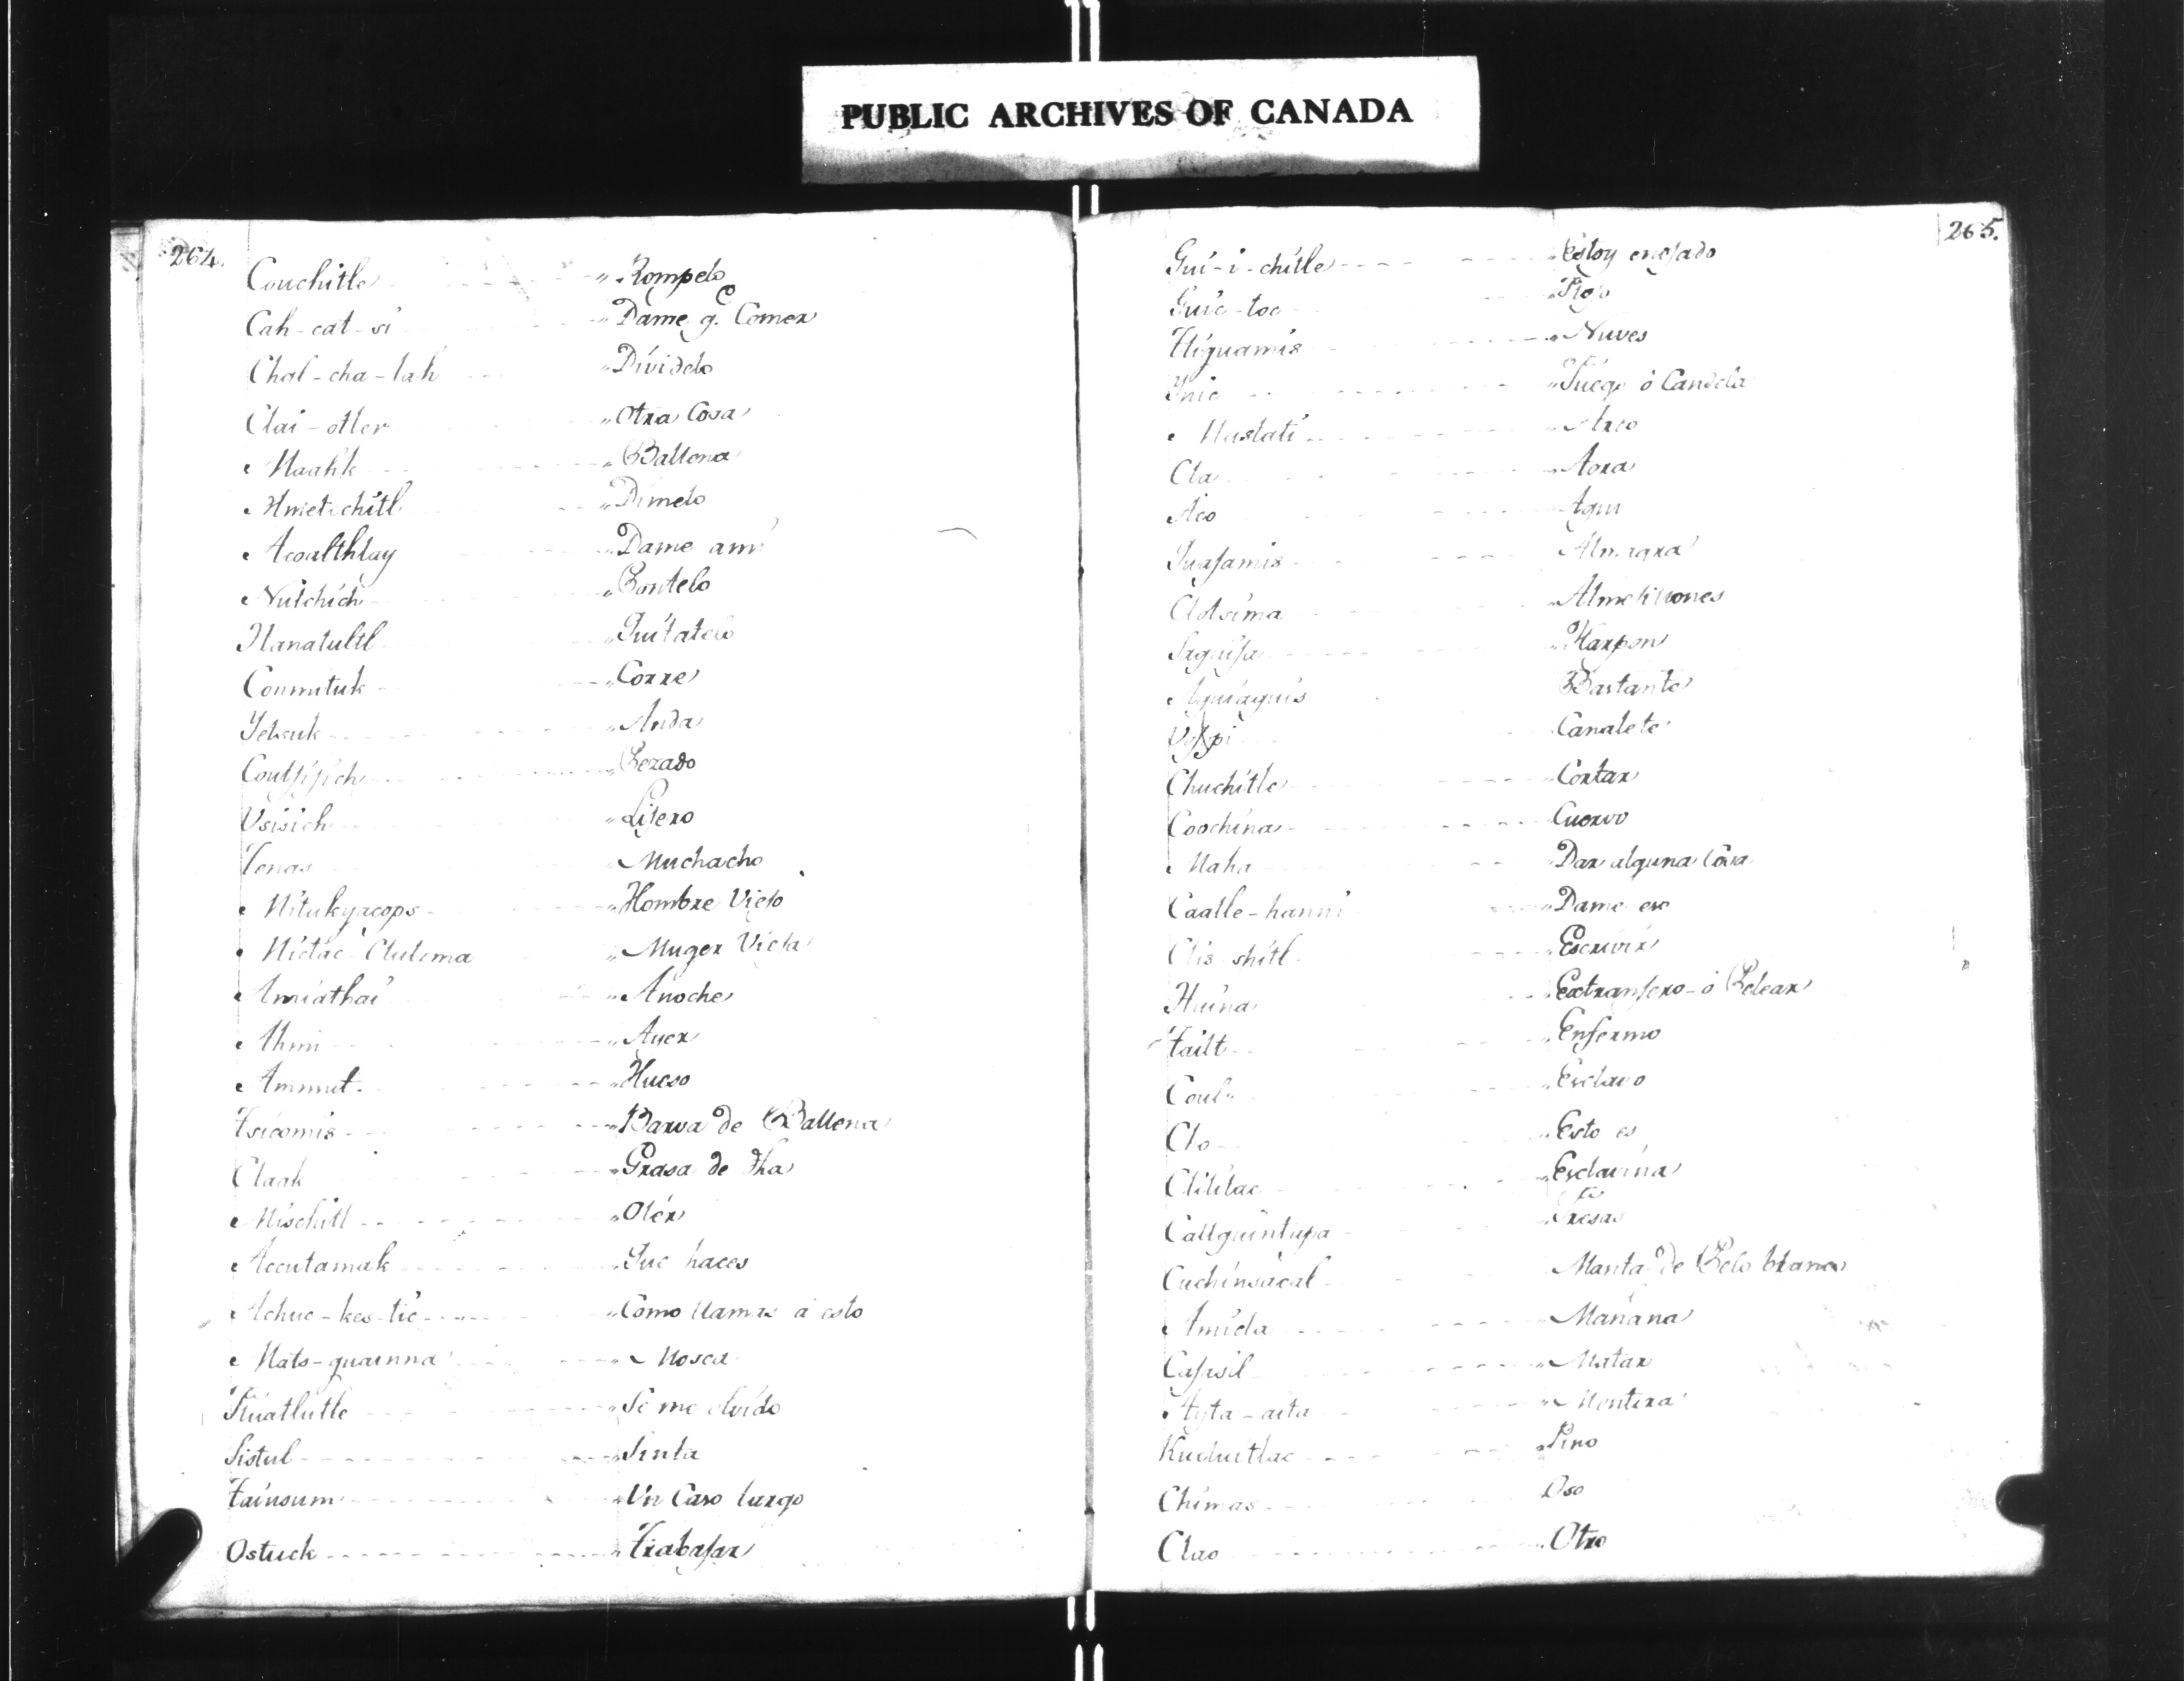 PUBLIC ARCHIVES OF CANADA
264.
Couchitle " Rompelo
Cah-cat-si " Dame q.e Comer
Chal-cha-lah " Dividelo
Clai-otler " Otra Cosa
Maahk " Ballena
Amet-chitl " Dimelo
Acoalthlay " Dame ami
Nutchich " Pontelo
Hanatultl " Quitatelo
Conmituk " Corre
Yetsuk " Anda
Coutsisich " Pezado
Usisich " Lijero
Tenas " Muchacho
Mitukyacops " Hombre Viejo
Mictac-Clutsma " Muger Vieja
Amiathai " Anoche
Ahmi " Ayer
Ammut " Hueso
Tsicomis " Barva de Ballena
Claak " Grasa de Yha
Mischitl " Olér
Accutamak " Que haces
Achuc-kes-tic " Como llamas á esto
Mats-quainna " Mosca
Siuatlutle " Se me olvido
Sistul " Sinta
Tainsum " Un Caso largo
Ostuck " Trabajar
265.
Gui-i-chitle " Estoy enojado
Guic-toc " Piojo
Higuamis " Nuves
Inic " Fuego ó Candela
Mustati " Arco
Cla " Aora
Aco " Aqui
Quasamis " Almagra
Clotsima " Almejillones
Saguisa " Harpon
Aquiaquis " Bastante
Canalete
Chuchitle " Cortar
Coochina " Cuervo
Maha " Dar alguna Cosa
Caatle-hanni " Dame eso
Clis-shitl " Escrivir
Huina " Extranjero-ó Pelear
Tailt " Enfermo
Coul " Esclavo
Clo " Esto es
Clitilac " Esclavina
Callquintupa " Fresas
Cuchinsacal Manta de Pelo blanco
Amicla " Mañana
Casasil " Matar
Ayta-aita " Montera
Kuchuitlac " Pino
Chimas Oso
Clao " Otro